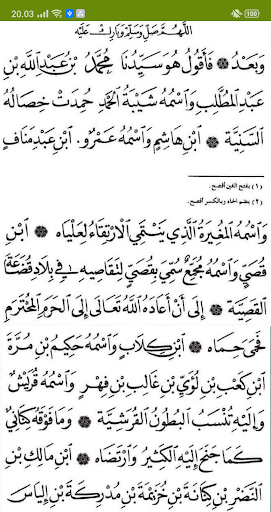 20.03
100
اللَّهُمَّ صَلِّ وَسَلِّمْ وَبَارِكْ عَلَيْهِ
وَبَعْدُ ۞ فَأَقُولُ هُوَ سَيِّدُنَا مُحَمَّدُ بْنُ عَبْدِ اللَّهِ بْنِ
عَبْدِ الْمُطَّلِبِ وَاسْمُهُ شَيْبَةُ الْحَمْدِ حُمِدَتْ خِصَالُهُ
السَّنِيَّةُ ۞ ابْنِ هَاشِمٍ وَاسْمُهُ عَمْرُو. ابْنِ عَبْدِ مَنَافٍ
(١) بفتح الغين أفصح.
(٢) بضم الحاء وبالكسر أفصح.
وَاسْمُهُ الْمُغِيرَةُ الَّذِي يَنْتَمِي الْاِرْتِقَاءُ لِعَلْيَاهُ ۞ ابْنِ
قُصَيٍّ وَاسْمُهُ مُجَمِّعٌ سُمِّيَ بِقُصَيٍّ لِتَقَاصِيهِ فِي بِلَادِ قُضَاعَةَ
الْقَصِيَّةِ ۞ إِلَى أَنْ أَعَادَهُ اللَّهُ تَعَالَى إِلَى الْحَرَمِ الْمُحْتَرَمِ
فَحَمَى حِمَاهُ ۞ ابْنِ كِلَابٍ وَاسْمُهُ حَكِيمُ بْنِ مُرَّةَ
ابْنِ كَعْبِ بْنِ لُؤَيِّ بْنِ غَالِبِ بْنِ فِهْرٍ وَاسْمُهُ قُرَيْشٌ
وَإِلَيْهِ تُنْسَبُ الْبُطُونُ الْقُرَشِيَّةُ ۞ وَمَا فَوْقَهُ كِنَانِيٌّ
كَمَا جَنَحَ إِلَيْهِ الْكَثِيرُ وَارْتَضَاهُ ۞ ابْنِ مَالِكِ بْنِ
النَّضْرِ بْنِ كِنَانَةَ بْنِ خُزَيْمَةَ بْنِ مُدْرِكَةَ بْنِ إِلْيَاسَ